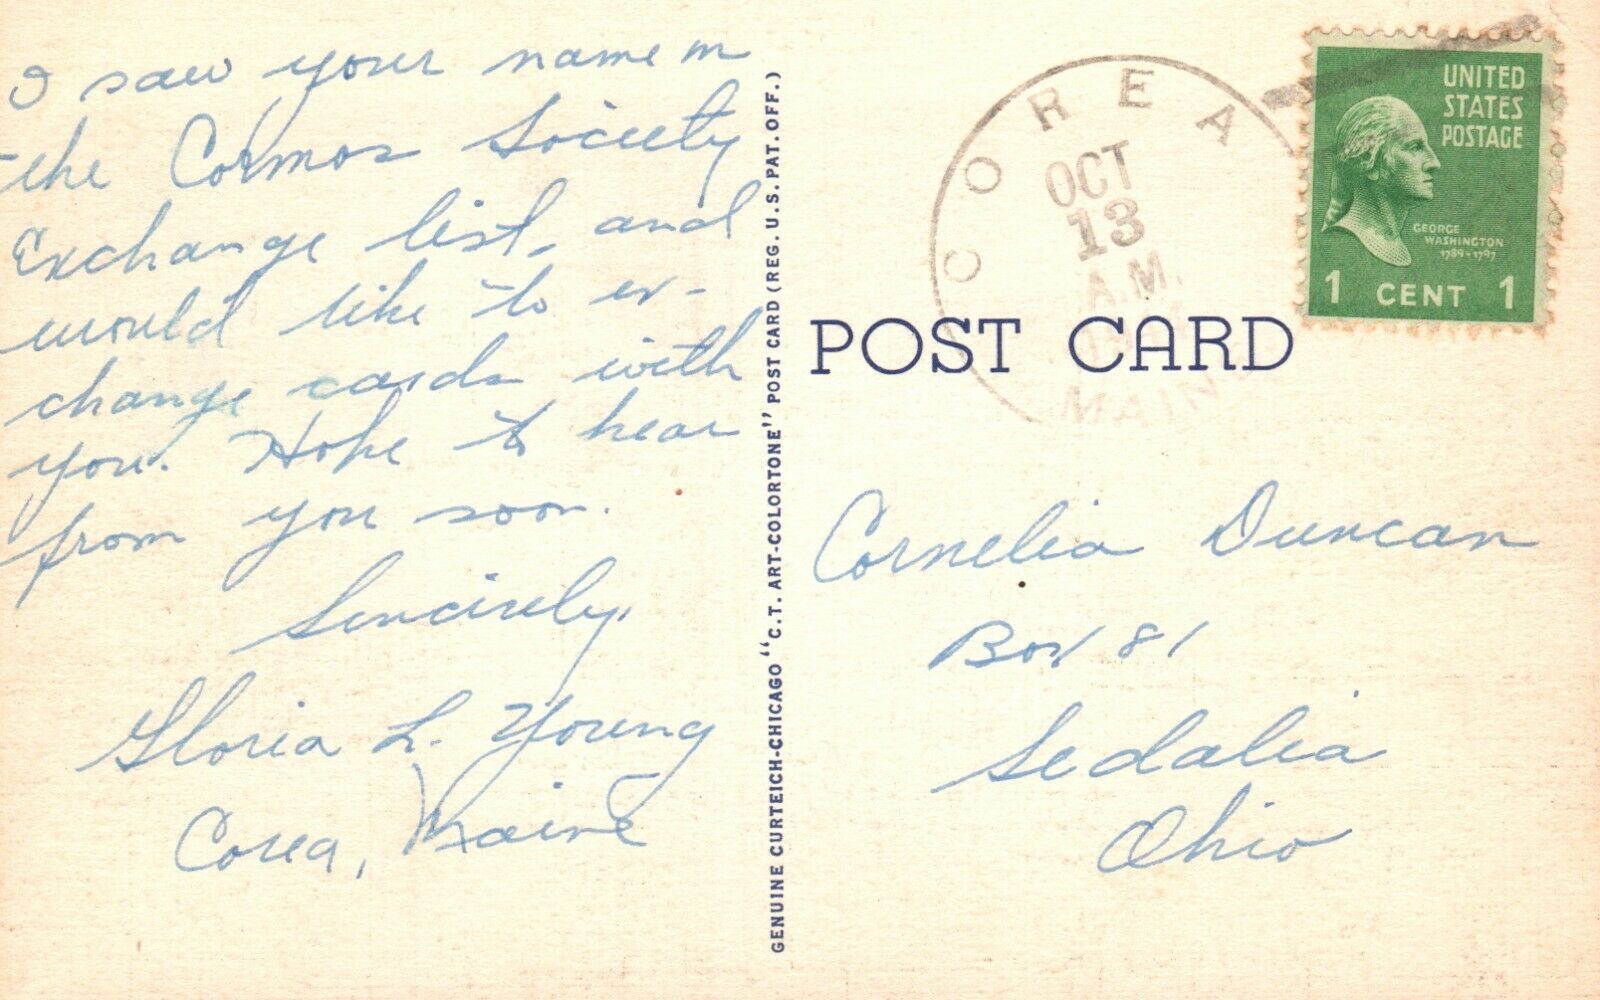 I saw your name in
the Cormos Society
Exchange list, and
would like to ex-
change cards with
you. Hope to hear
from you soon.
Sincerely,
Gloria L. Young
Corea, Maine
GENUINE CURTEICH-CHICAGO "C.T. ART-COLORTONE" POST CARD (REG. U.S. PAT. OFF.)
COREA
OCT
13
A.M.
MAINE
UNITED
STATES
POSTAGE
GEORGE
WASHINGTON
1789-1797
1 CENT 1
POST CARD
Cornelia Duncan
Box 81
Sedalia
Ohio